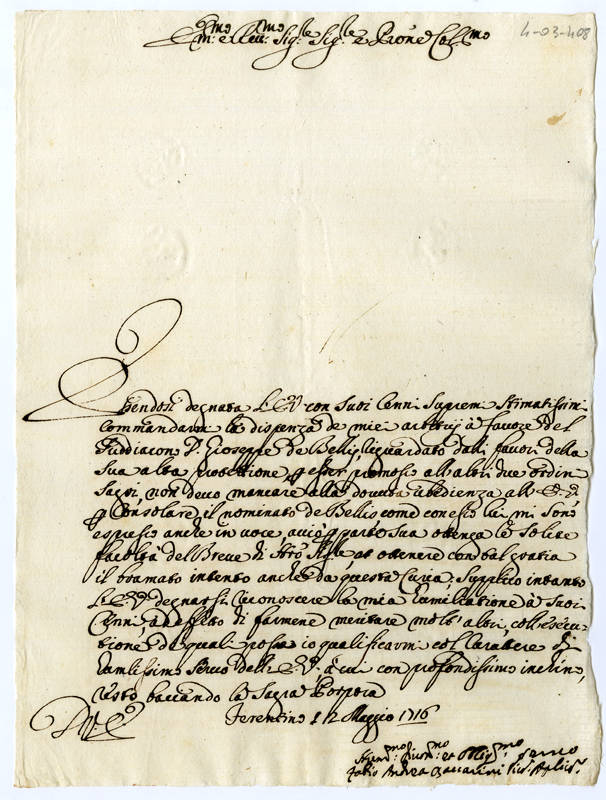 4-03-408
Em.mo e Reu.mo Sig.re Sig.re e Prone Col.mo
Essendosi degnata L'E.V. con suoi Cenni supremi stimatissimi
commandarmi la dispenza de miei arbitrij à fauore del
Suddiacono D. Gioseppe de Bellis, riguardato dalli fauori della
sua alta protettione, p esser promosso alli altri due ordini
sagri, non deuo mancare alla douuta ubedienza all'E.V.
p consolare il nominato de Bellis come con esso lui mi sono
espresso anche in uoce, acciò p parte sua ottenga le solite
facoltà del Breue di Nro Sig.re et ottenere con tal gratia
il bramato intento anche da questa Curia; Supplico intanto
L'E.V. degnarsi riconoscere la mia humiliatione à suoi
Cenni, ad effetto di farmene meritare molti altri, coll'esecu-
tione de quali possa io qualificarmi col Carattere di
humilissimo seruo dell'E.V. à cui con profondissimo inchino,
resto bacciando la Sagra Porpora
D.V.E. Ferentino 12 Maggio 1716
Hum.mo Diuot.mo et Oblig.mo seruo
Fabio Andrea Zaccarini Vic.o Aplico